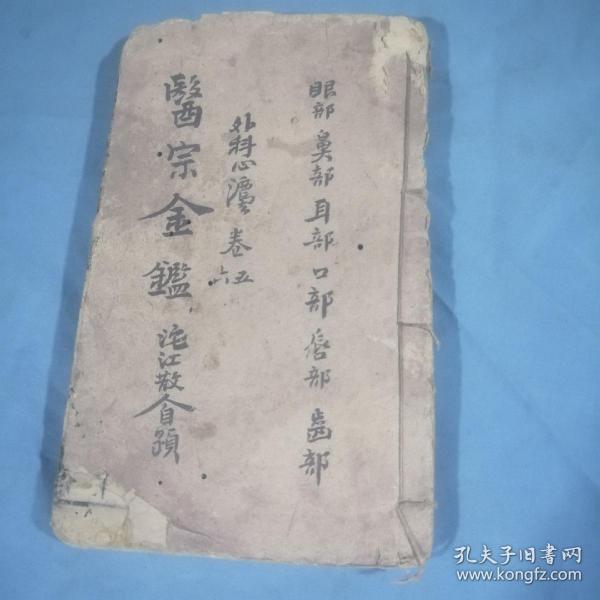 眼部 鼻部 耳部 口部 唇部 齒部
外科心法 卷五六
醫宗金鑑
沱江散人自題
孔夫子旧书网
www.kongfz.com